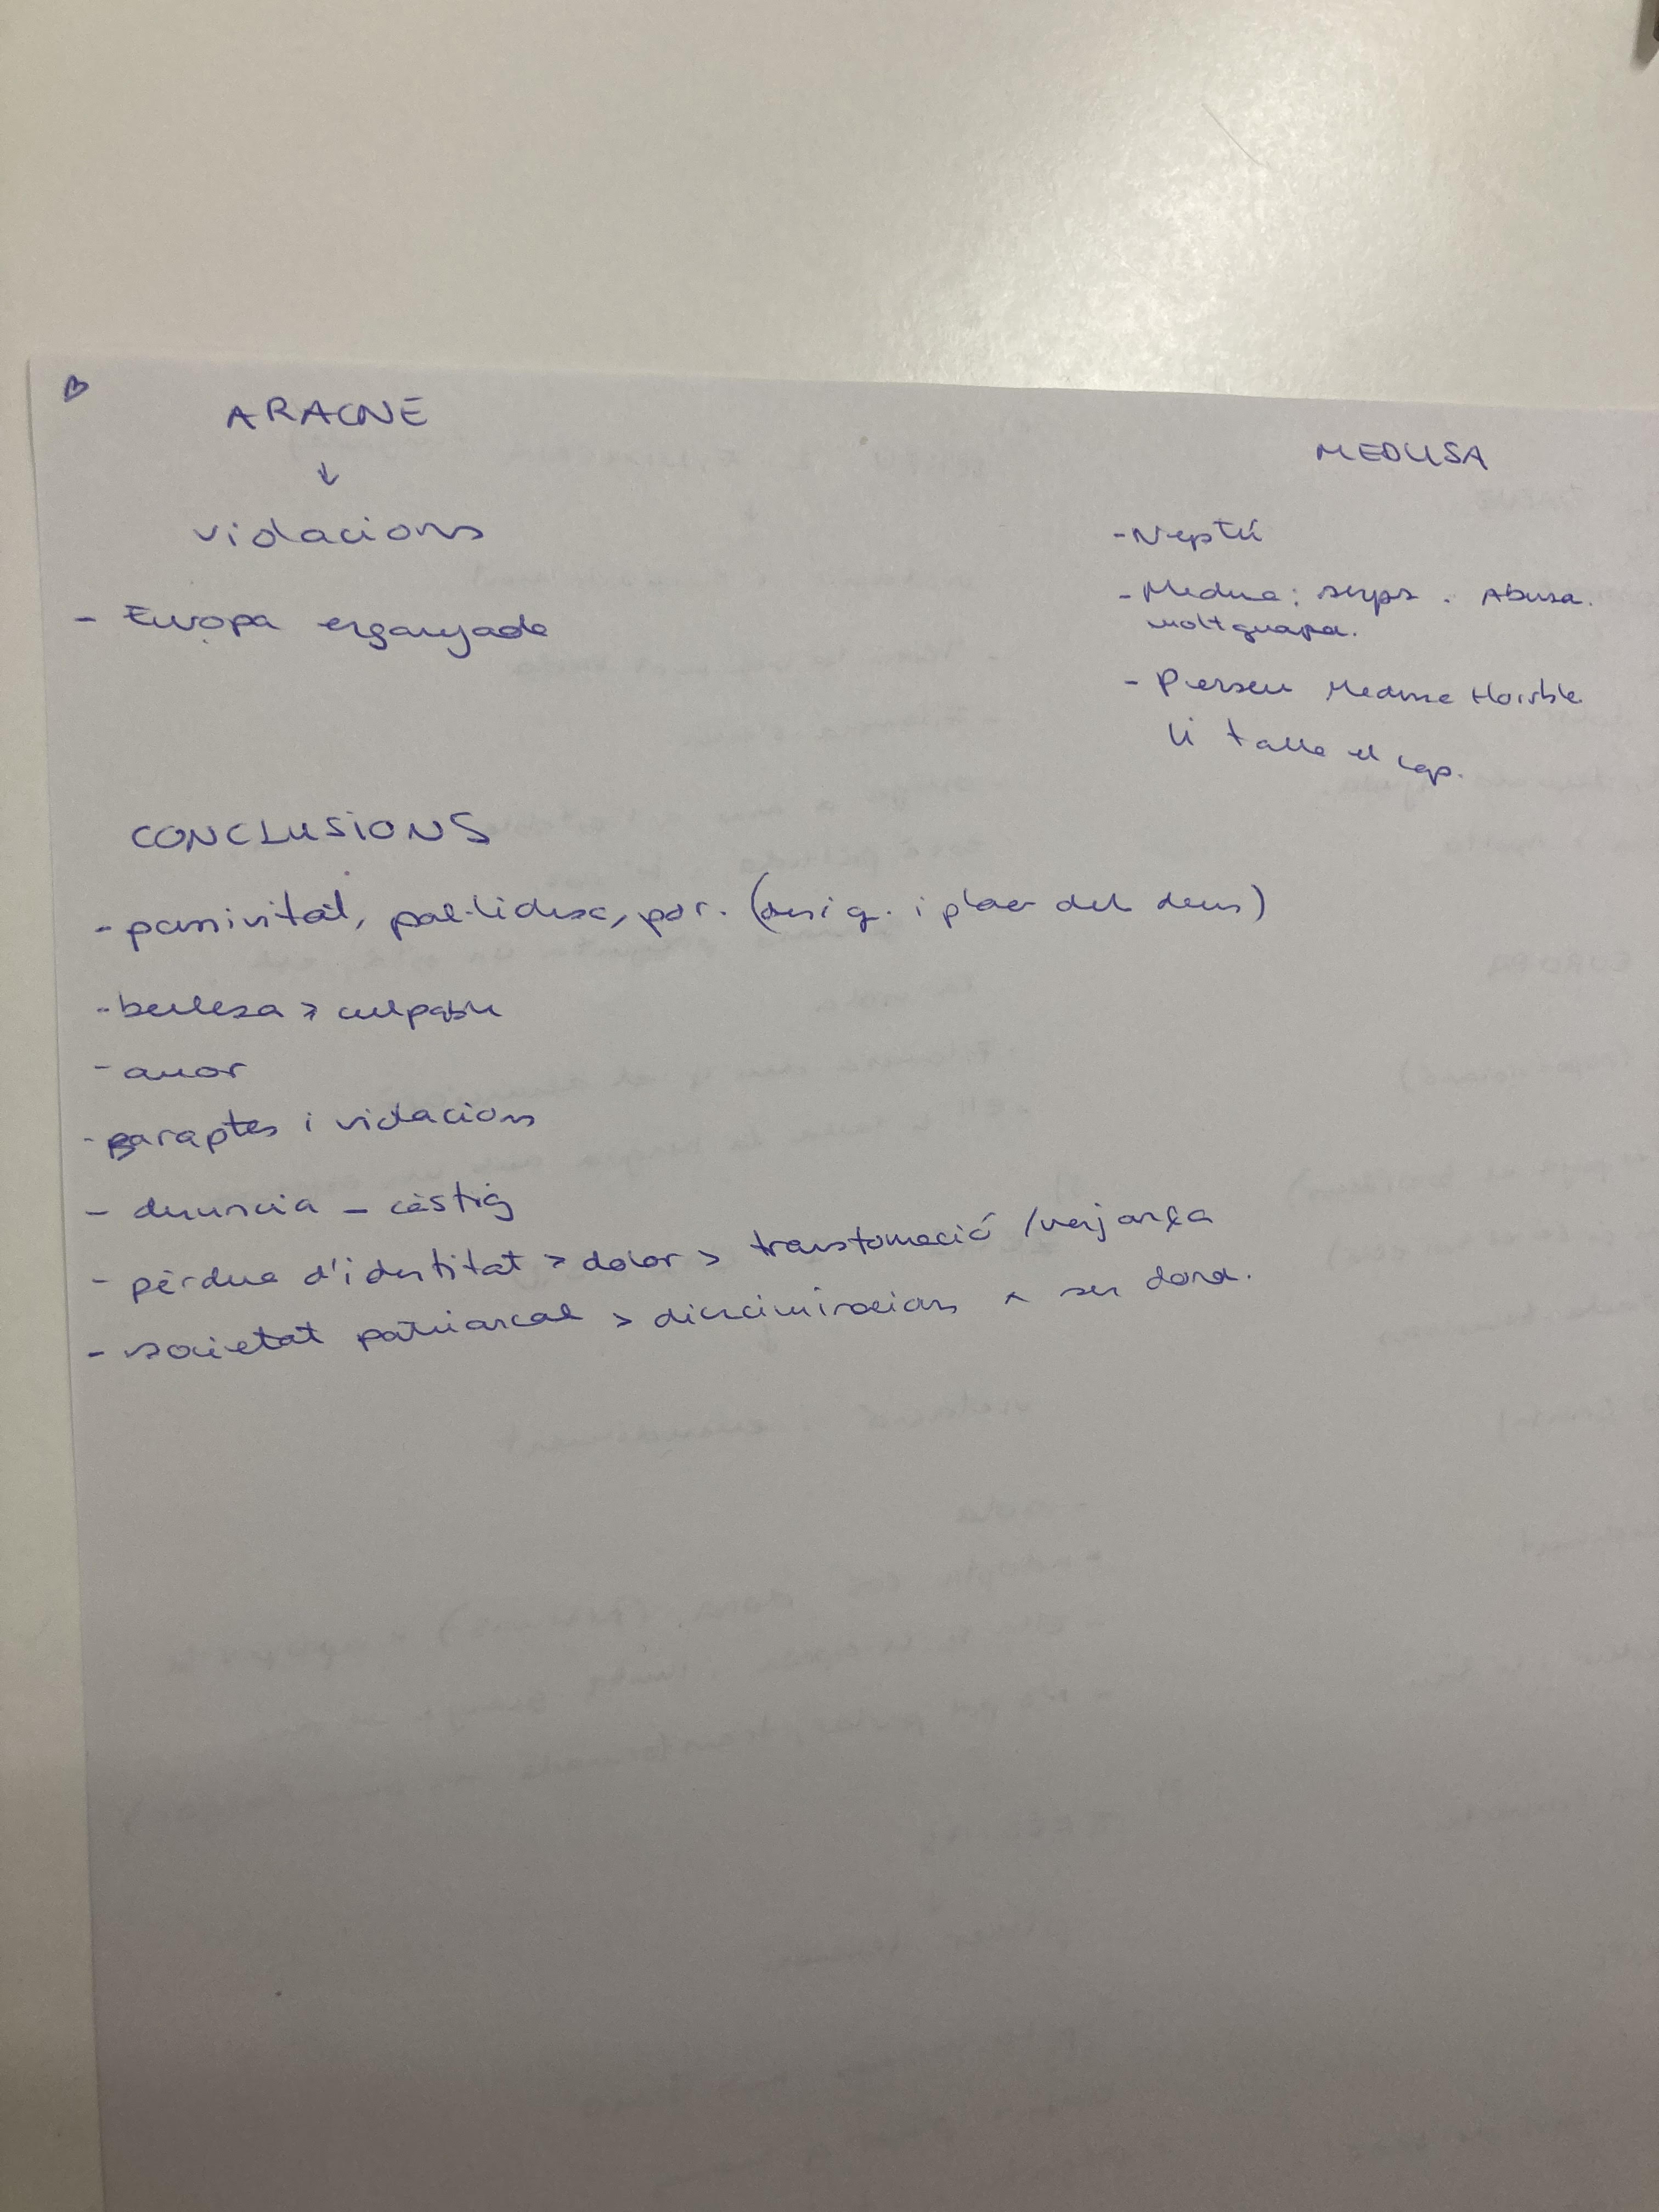 ARACNE
↓
violacions
- Europa enganyada
MEDUSA
- Neptú
- Medusa: serps. Abusa.
molt guapa.
- Perseu Medusa Horrible
li talla el cap.
CONCLUSIONS
- passivitat, pal·lidesa, por. (desig. i plaer dels deus)
- bellesa > culpable
- amor
- raptes i violacions
- denuncia - càstig
- pèrdua d'identitat > dolor > transfomació / venjança
- societat patriarcal > discriminacions x ser dona.